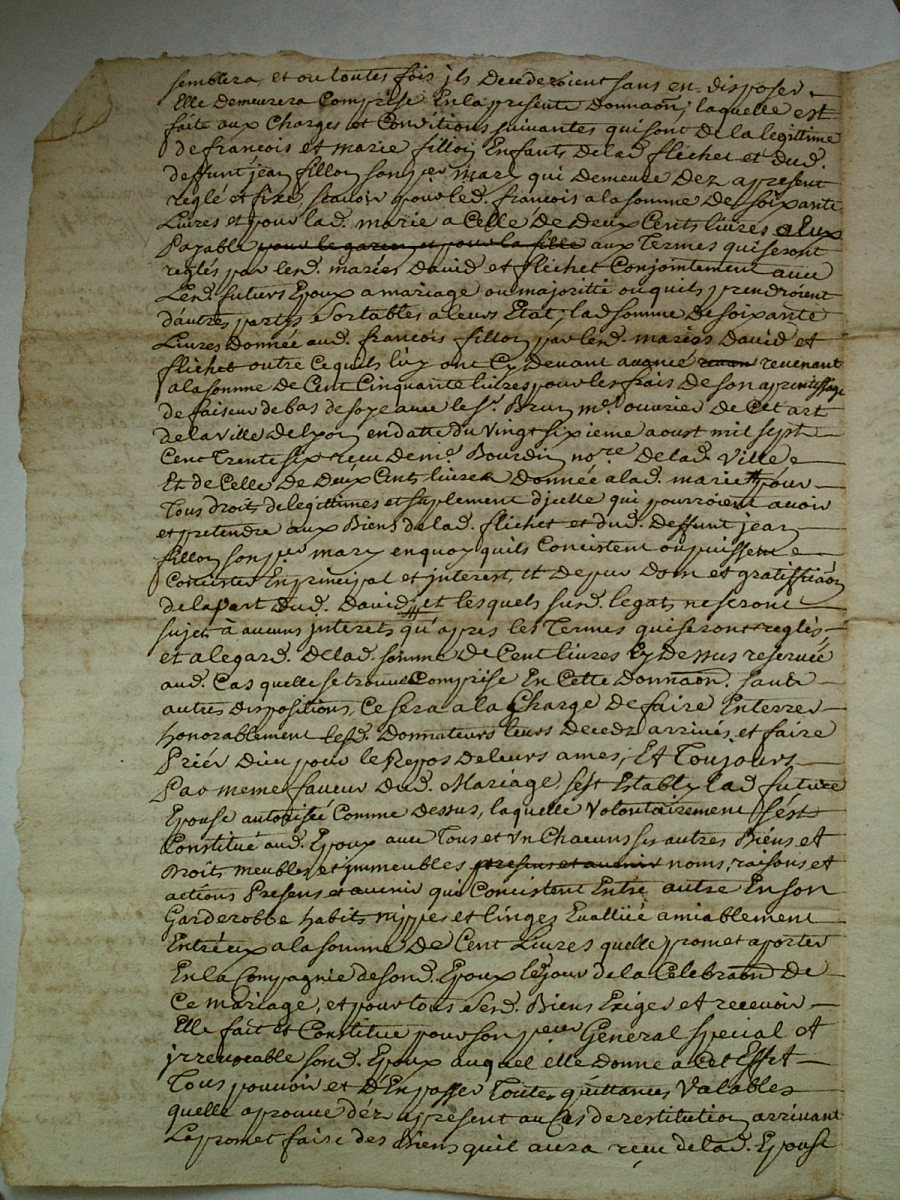 semblera, et ou toutes fois jls Decederoient sans en disposer
Elle Demeurera Comprise En la presente Donnaon, laquelle est
faite aux Charges et Conditions suivantes qui sont De la legittime
de francois et marie filloy Enfants De lad. flichet et dud.
deffunt jean filloy son per mary qui demeure Dez apresent
reglé et fixé, scavoir pour led. francois a la somme De soixante
Livres et pour lad. marie a Celle De Deux Cents livres
Payable pour le garcon et pour la fille aux Termes qui seront
reglés par lesd. mariés David et flichet Conjointement avec
Lesd. futurs Epoux a mariage ou majoritté ou quils prendroient
d'autres partys Sortables a leurs Etat, lad somme De soixante
Livres Donnée aud. francois filloy par lesd. mariés David et
flichet outre Ce quils luy ont Cy Devant revenant
a la somme De Cent Cinquante livres pour les frais De son aprentissage
de faiseur de bas de soye avec le sr. Brun me. ouvrier De Cet art
de la Ville de Lyon en datte du Vingt sixieme aoust mil sept
Cent Trente six reçu De me. Bourdin nore. De lad. Ville
Et de Celle De Deux Cents livres Donnée a lad. marie pour
Tous droits de legittimes et suplement d'jcelle qui pourroient avoir
et pretendre aux Biens de lad. flichet et dud. Deffunt jean
filloy son per mary en quoy quils Concistent ou puissent
Concister En principal et jnterest, et De pur Dom et gratiffiaon
de la part Dud. David, et lesquels susd. legats ne seront
sujets à aucuns jnterets qu'apres les Termes qui seront reglés,
et a legard. De lad. somme De Cent livres Cy Dessus reservée
aud. Cas quelle se trouve Comprise En Cette Donnaon. sauts
autres dispositions, Ce sera a la Charge De faire Enterrer
honorablement lesd. Donnateurs leurs Decedz arrivés, et faire
Priér Dieu pour le Repos De leurs ames; Et Toujours
Par meme faveur Dud. Mariage sest Establÿ lad. future
Epouse autorisée Comme Dessus, laquelle Volontairement s'est
Constitué aud. Epoux avec Tous et Un Chacuns ses autres Biéns et
Droits, meubles et jmmeubles presens et avenir noms, raisons et
actions Presens et avenir qui Concistent Entre autre En son
Garderobbe habits nippes et linges Evalluée amiablement
Entréeux a la somme De Cent Livres quelle promet aporter
En la Compagnie de sond. Epoux le jour de la Celebraon De
Ce mariage, et pour tous Sesd. Biens Exiger et recevoir
Elle fait et Constitue pour son peur Général special et
jrrevocable sond. Epoux auquel elle Donne a Cet Effet
Tous pouvoir et D'En passer Toutes quittances Valables
quelle aprouve déz apresent au Cas de restitution arrivant
La promet faire des Biens qu'il aura reçu de lad. Epouse